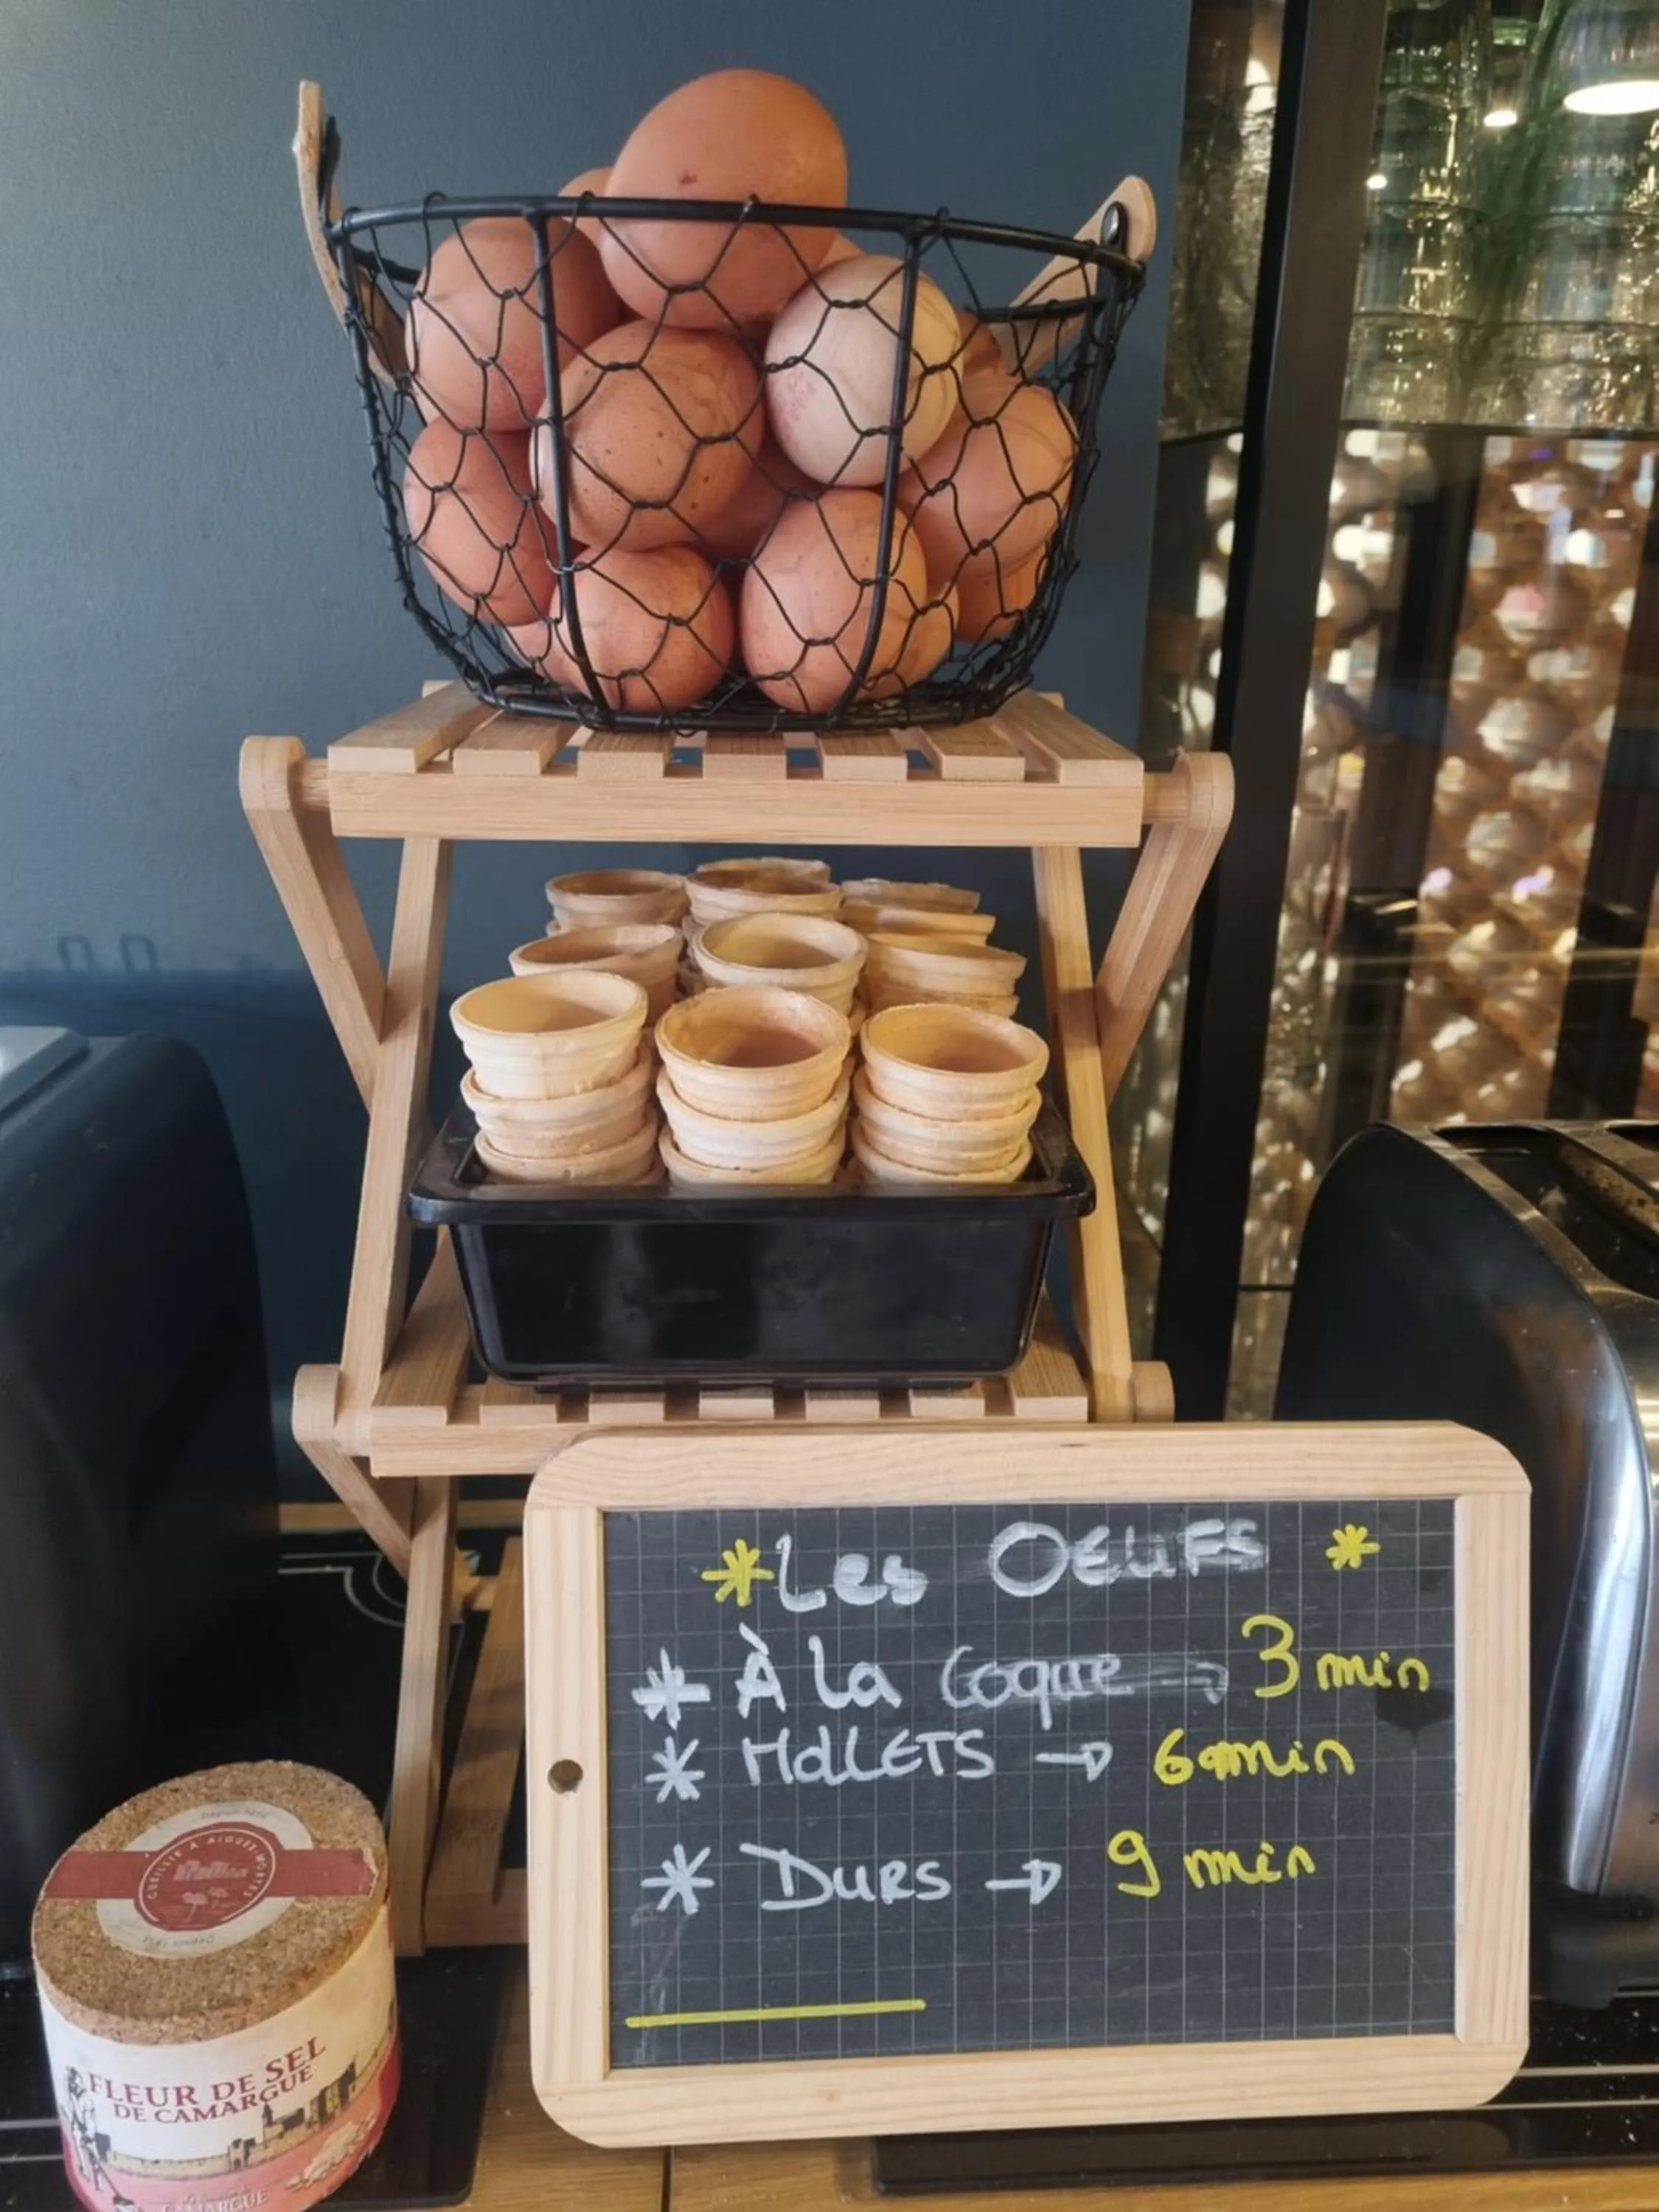 *Les OEUFS *
* À La Coque → 3 min
* MOLLETS → 6 min
* DURS → 9 min
CUEILLIE À AIGUES-MORTES
FLEUR DE SEL
DE CAMARGUE
CAMARGUE